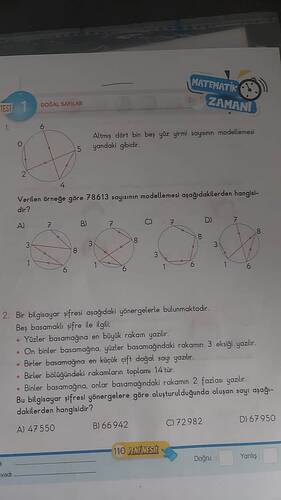 MATEMATİK
ZAMANI
TEST 1
DOĞAL SAYILAR
1.
6
0
5
2
4
Altmış dört bin beş yüz yirmi sayısının modellemesi
yandaki gibidir.
Verilen örneğe göre 78613 sayısının modellemesi aşağıdakilerden hangisi-
dir?
A) B) C) D)
7 7 7 7
3 8 3 8 8 3 8
1 6 1 6 3 1 6 1 6
2. Bir bilgisayar şifresi aşağıdaki yönergelerle bulunmaktadır.
Beş basamaklı şifre ile ilgili;
• Yüzler basamağına en büyük rakam yazılır.
• On binler basamağına, yüzler basamağındaki rakamın 3 eksiği yazılır.
• Birler basamağına en küçük çift doğal sayı yazılır.
• Birler bölüğündeki rakamların toplamı 14'tür.
• Binler basamağına, onlar basamağındaki rakamın 2 fazlası yazılır.
Bu bilgisayar şifresi yönergelere göre oluşturulduğunda oluşan sayı aşağı-
dakilerden hangisidir?
A) 47550 B) 66942 C) 72982 D) 67950
110
Doğru Yanlış